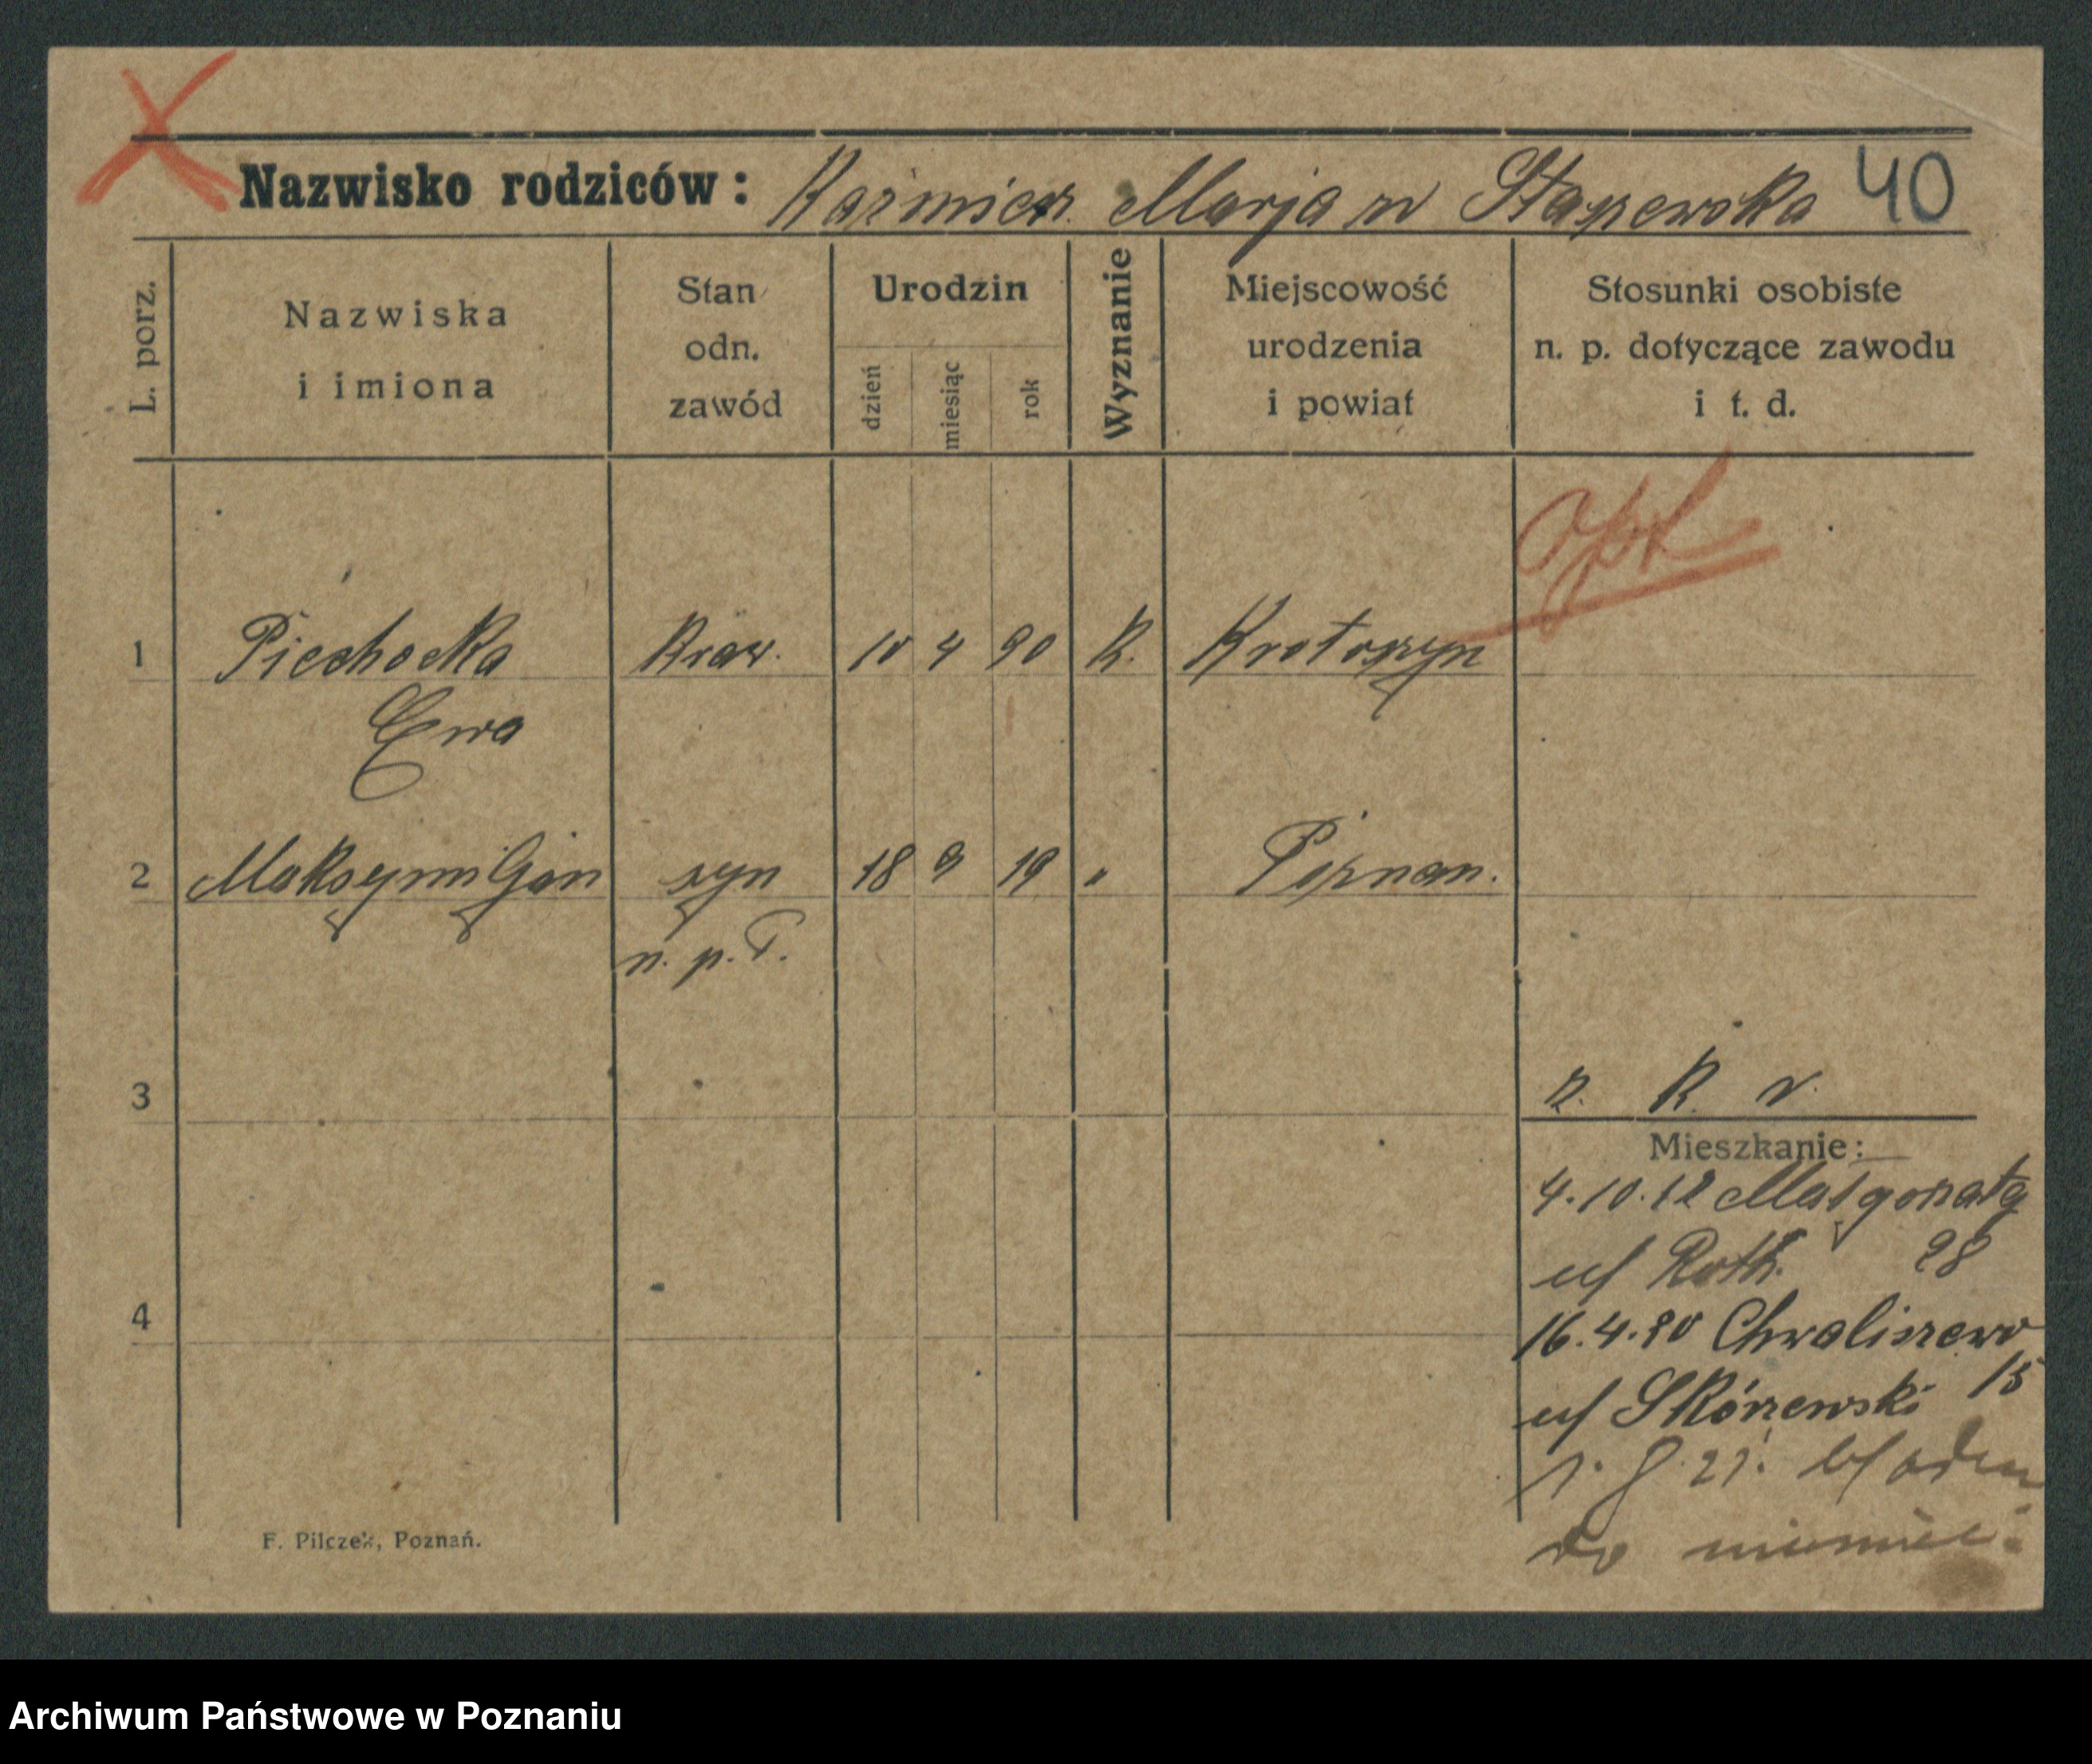 Nazwisko rodziców: Kaźmierz Marja m Staszewska 40
L. porz.
Nazwiska i imiona
Stan odn. zawód
Urodzin
dzień
miesiąc
rok
Wyznanie
Miejscowość urodzenia i powiat
Stosunki osobiste n. p. dotyczące zawodu i t. d.
Opt
1 Piechocka Kraw. 10 4 90 K. Krotoszyn
Ewa
2 Maksymiljan syn 18 9 19 " Poznan.
n. p. P.
3
R. K. v.
Mieszkanie:
4.10.12 Małgorzata
u/ Roth. 28
4
16.4.20 Chwaliszewo
u/ Skórzewski 15
21.
do niemiec.
F. Pilczek, Poznań.
Archiwum Państwowe w Poznaniu